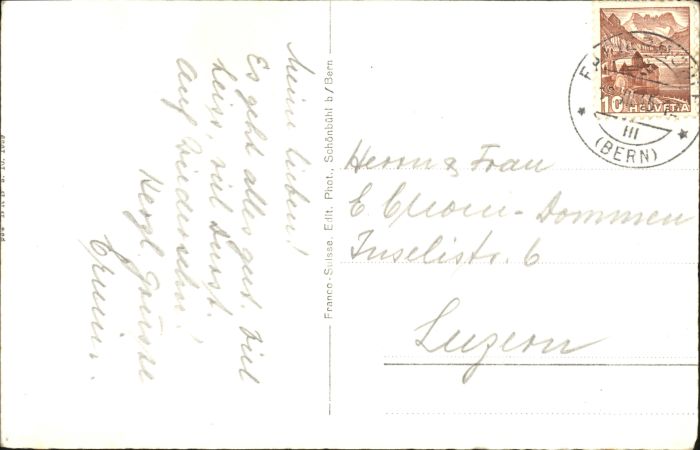 Meine Lieben!
Es geht alles gut. Viel
heiss, viel Durst.
Auf Wiedersehn!
Herzl. Grüsse
Erwin.
Franco-Suisse, Edit. Phot., Schönbühl b/Bern
10 HELVETIA
III
(BERN)
Herrn & Frau
E - Dommen
Inselistr. 6
Luzern